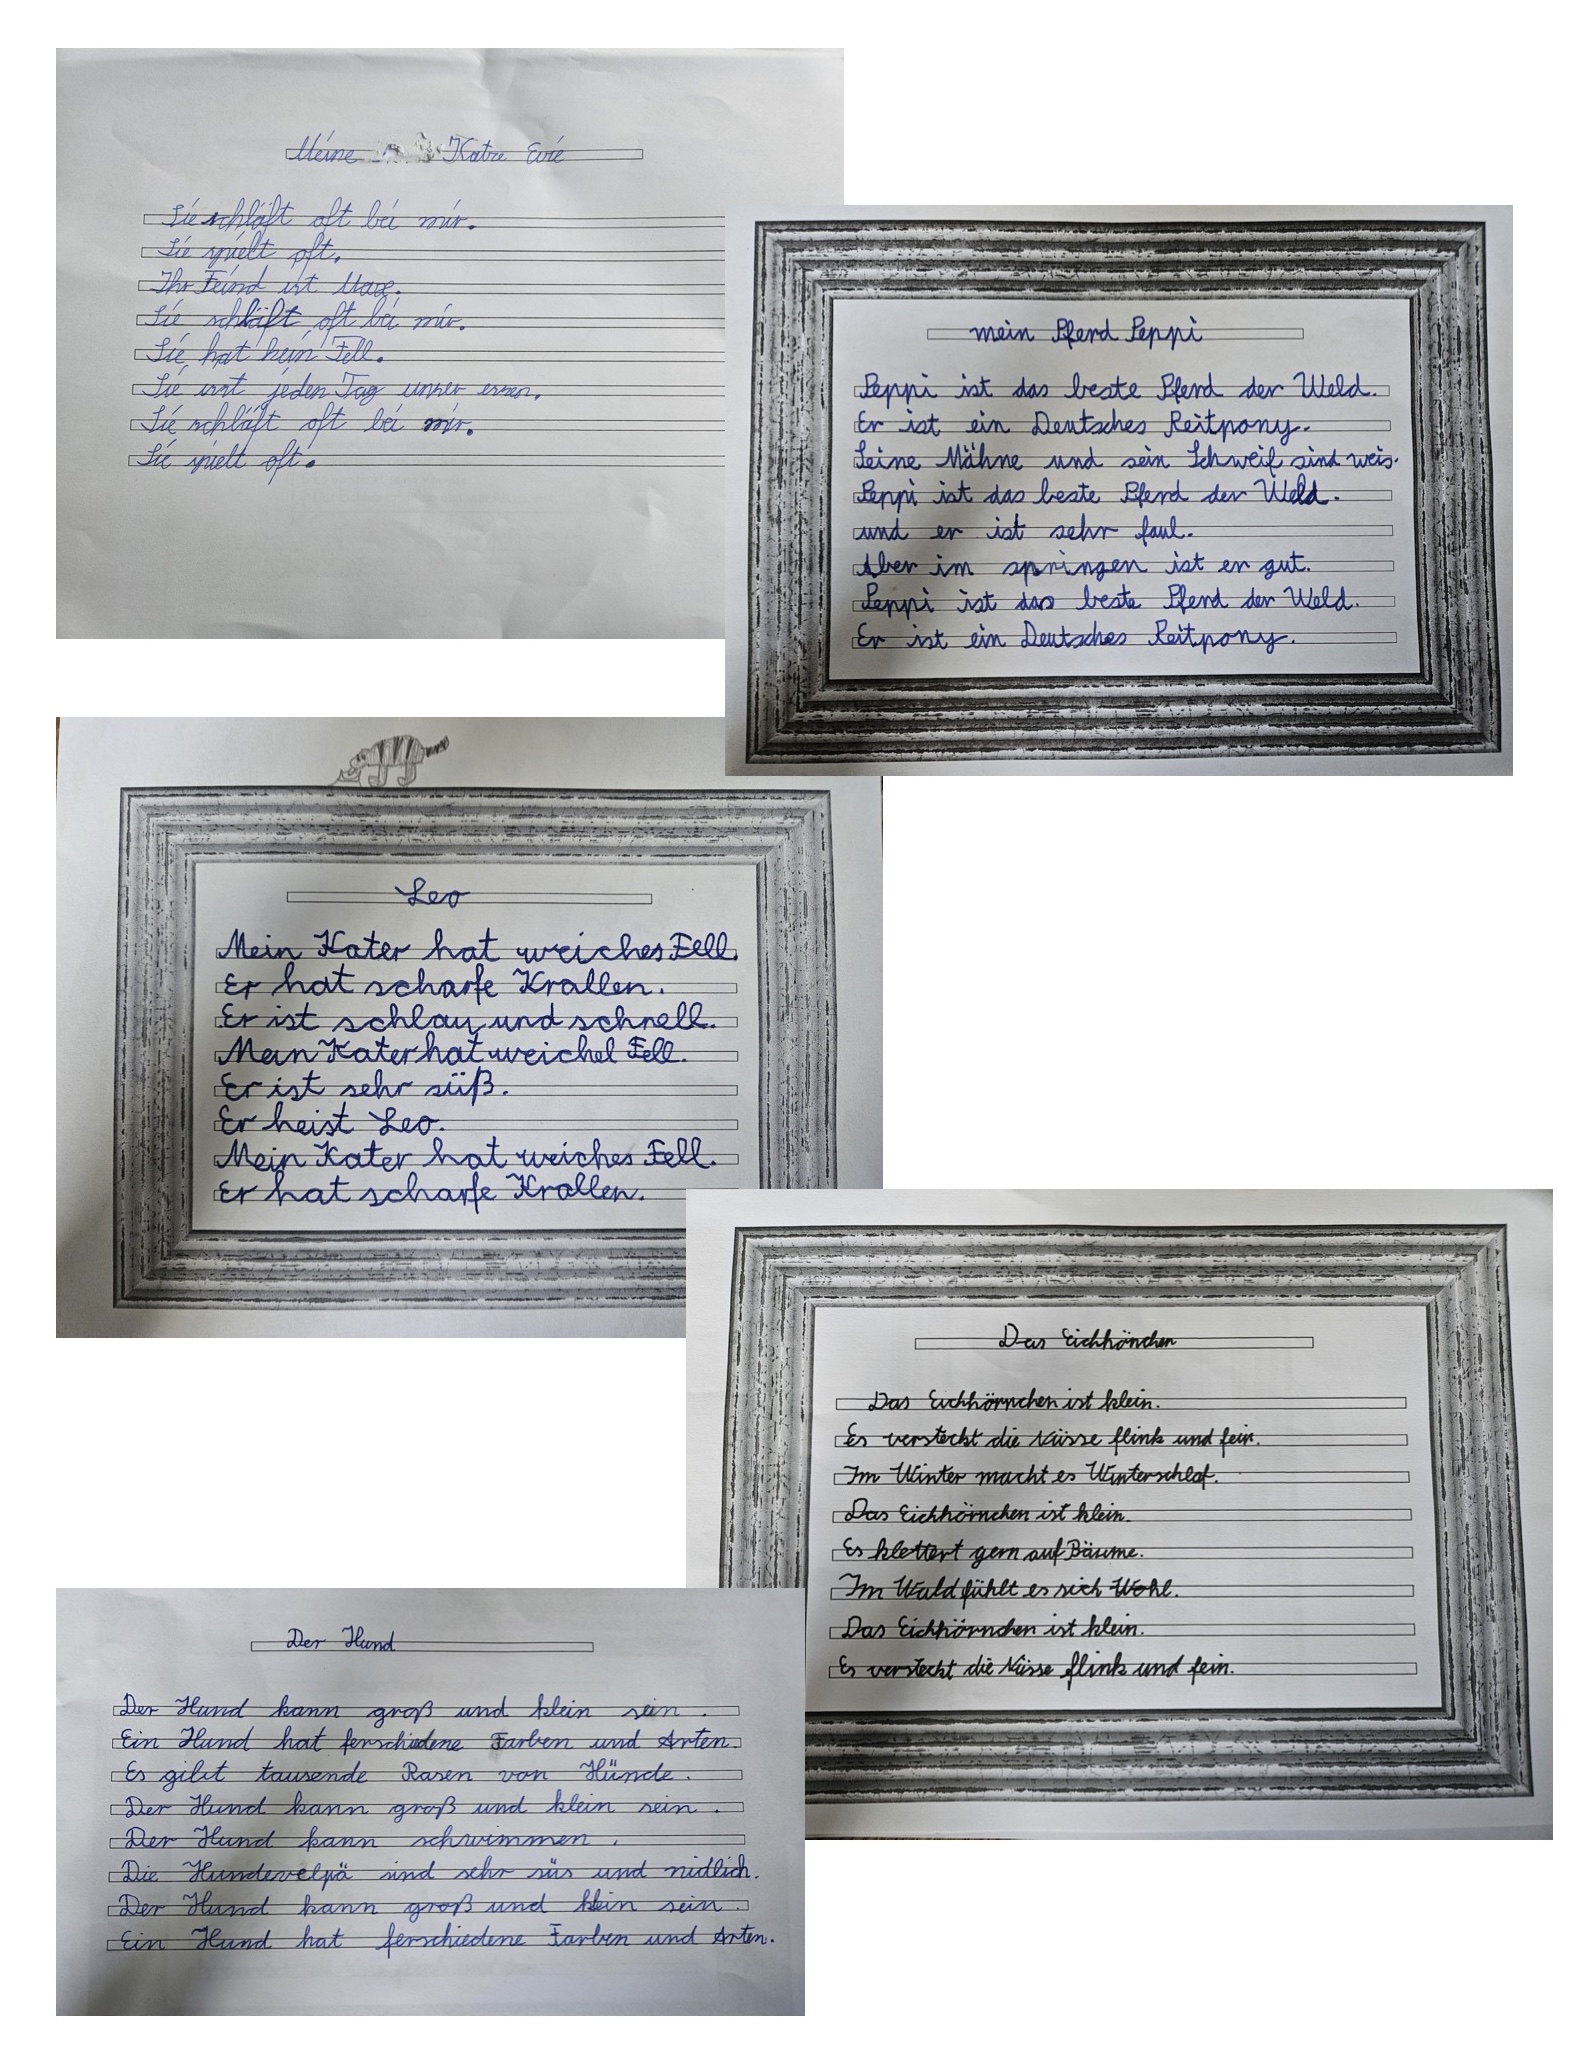 Meine Katze Evie
Sie schläft oft bei mir.
Sie spielt oft.
Ihr Feind ist Maxe.
Sie schläft oft bei mir.
Sie hat kein Fell.
Sie isst jeden Tag unser essen.
Sie schläft oft bei mir.
Sie spielt oft.
mein Pferd Peppi
Peppi ist das beste Pferd der Weld.
Er ist ein Deutsches Reitpony.
Seine Mähne und sein Schweif sind weis.
Peppi ist das beste Pferd der Weld.
und er ist sehr faul.
Aber im springen ist er gut.
Peppi ist das beste Pferd der Weld.
Er ist ein Deutsches Reitpony.
Leo
Mein Kater hat weiches Fell.
Er hat scharfe Krallen.
Er ist schlau und schnell.
Mein Kater hat weichel Fell.
Er ist sehr süß.
Er heist Leo.
Mein Kater hat weiches Fell.
Er hat scharfe Krallen.
Das Eichhönchen
Das Eichhörnchen ist klein.
Es versteckt die Nüsse flink und fein.
Im Winter macht es Winterschlaf.
Das Eichhörnchen ist klein.
Es klettert gern auf Bäume.
Im Wald fühlt es sich Wohl.
Das Eichhörnchen ist klein.
Es versteckt die Nüsse flink und fein.
Der Hund
Der Hund kann groß und klein sein.
Ein Hund hat ferschiedene Farben und Arten.
Es gibt tausende Rasen von Hünde.
Der Hund kann groß und klein sein.
Der Hund kann schwimmen.
Die Hundevelpä sind sehr süs und nidlich.
Der Hund kann groß und klein sein.
Ein Hund hat ferschiedene Farben und Arten.